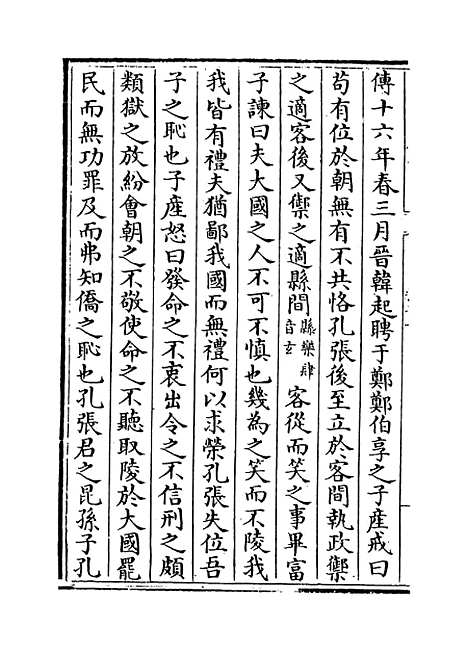 傳十六年春三月晉韓起聘于鄭鄭伯享之子産戒曰
苟有位於朝無有不共恪孔張後至立於客間執政禦
之適客後又禦之適縣間縣樂肆音玄客從而笑之事畢富
子諫曰夫大國之人不可不慎也幾為之笑而不陵我
我皆有禮夫猶鄙我國而無禮何以求榮孔張失位吾
子之恥也子産怒曰發命之不衷出令之不信刑之頗
類獄之放紛會朝之不敬使命之不聽取陵於大國罷
民而無功罪及而弗知僑之恥也孔張君之昆孫子孔